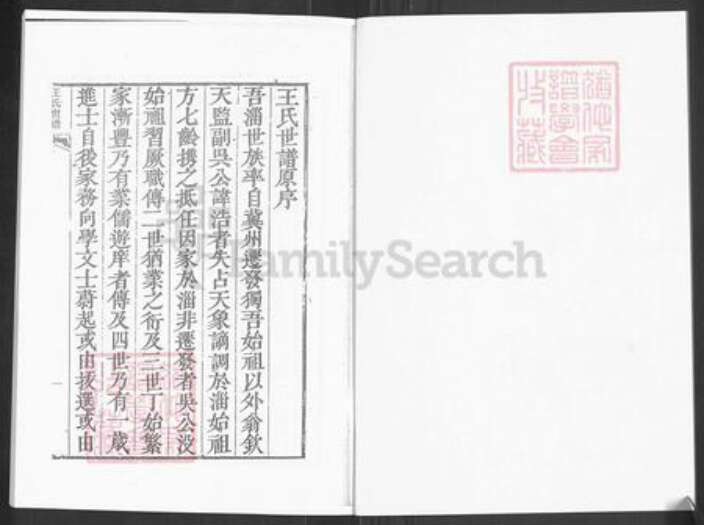 王氏世譜原序
吾淄世族率自冀州遷發獨吾始祖以外翁欽
天監副吳公諱浩者失占天象謫調於淄始祖
方七齡携之抵任因家於淄非遷發者吳公沒
始祖習厥職傳二世猶業之衍及三世丁始繁
家漸豐乃有業儒遊庠者傳及四世乃有一歲
進士自後家務向學文士蔚起或由拔選或由
王氏世譜
一
FamilySearch
譜學會
收藏